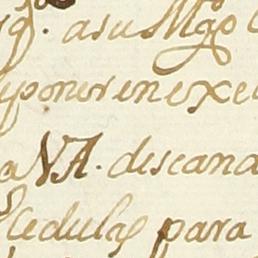 asu Mgo
ponerenexe
a VA. deseand
Cedulas para